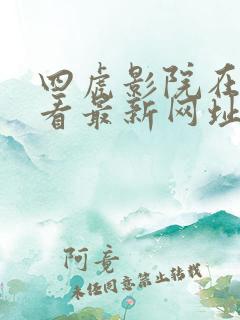 四虎影院在
看最新网址
阿竟
未经同意禁止转载